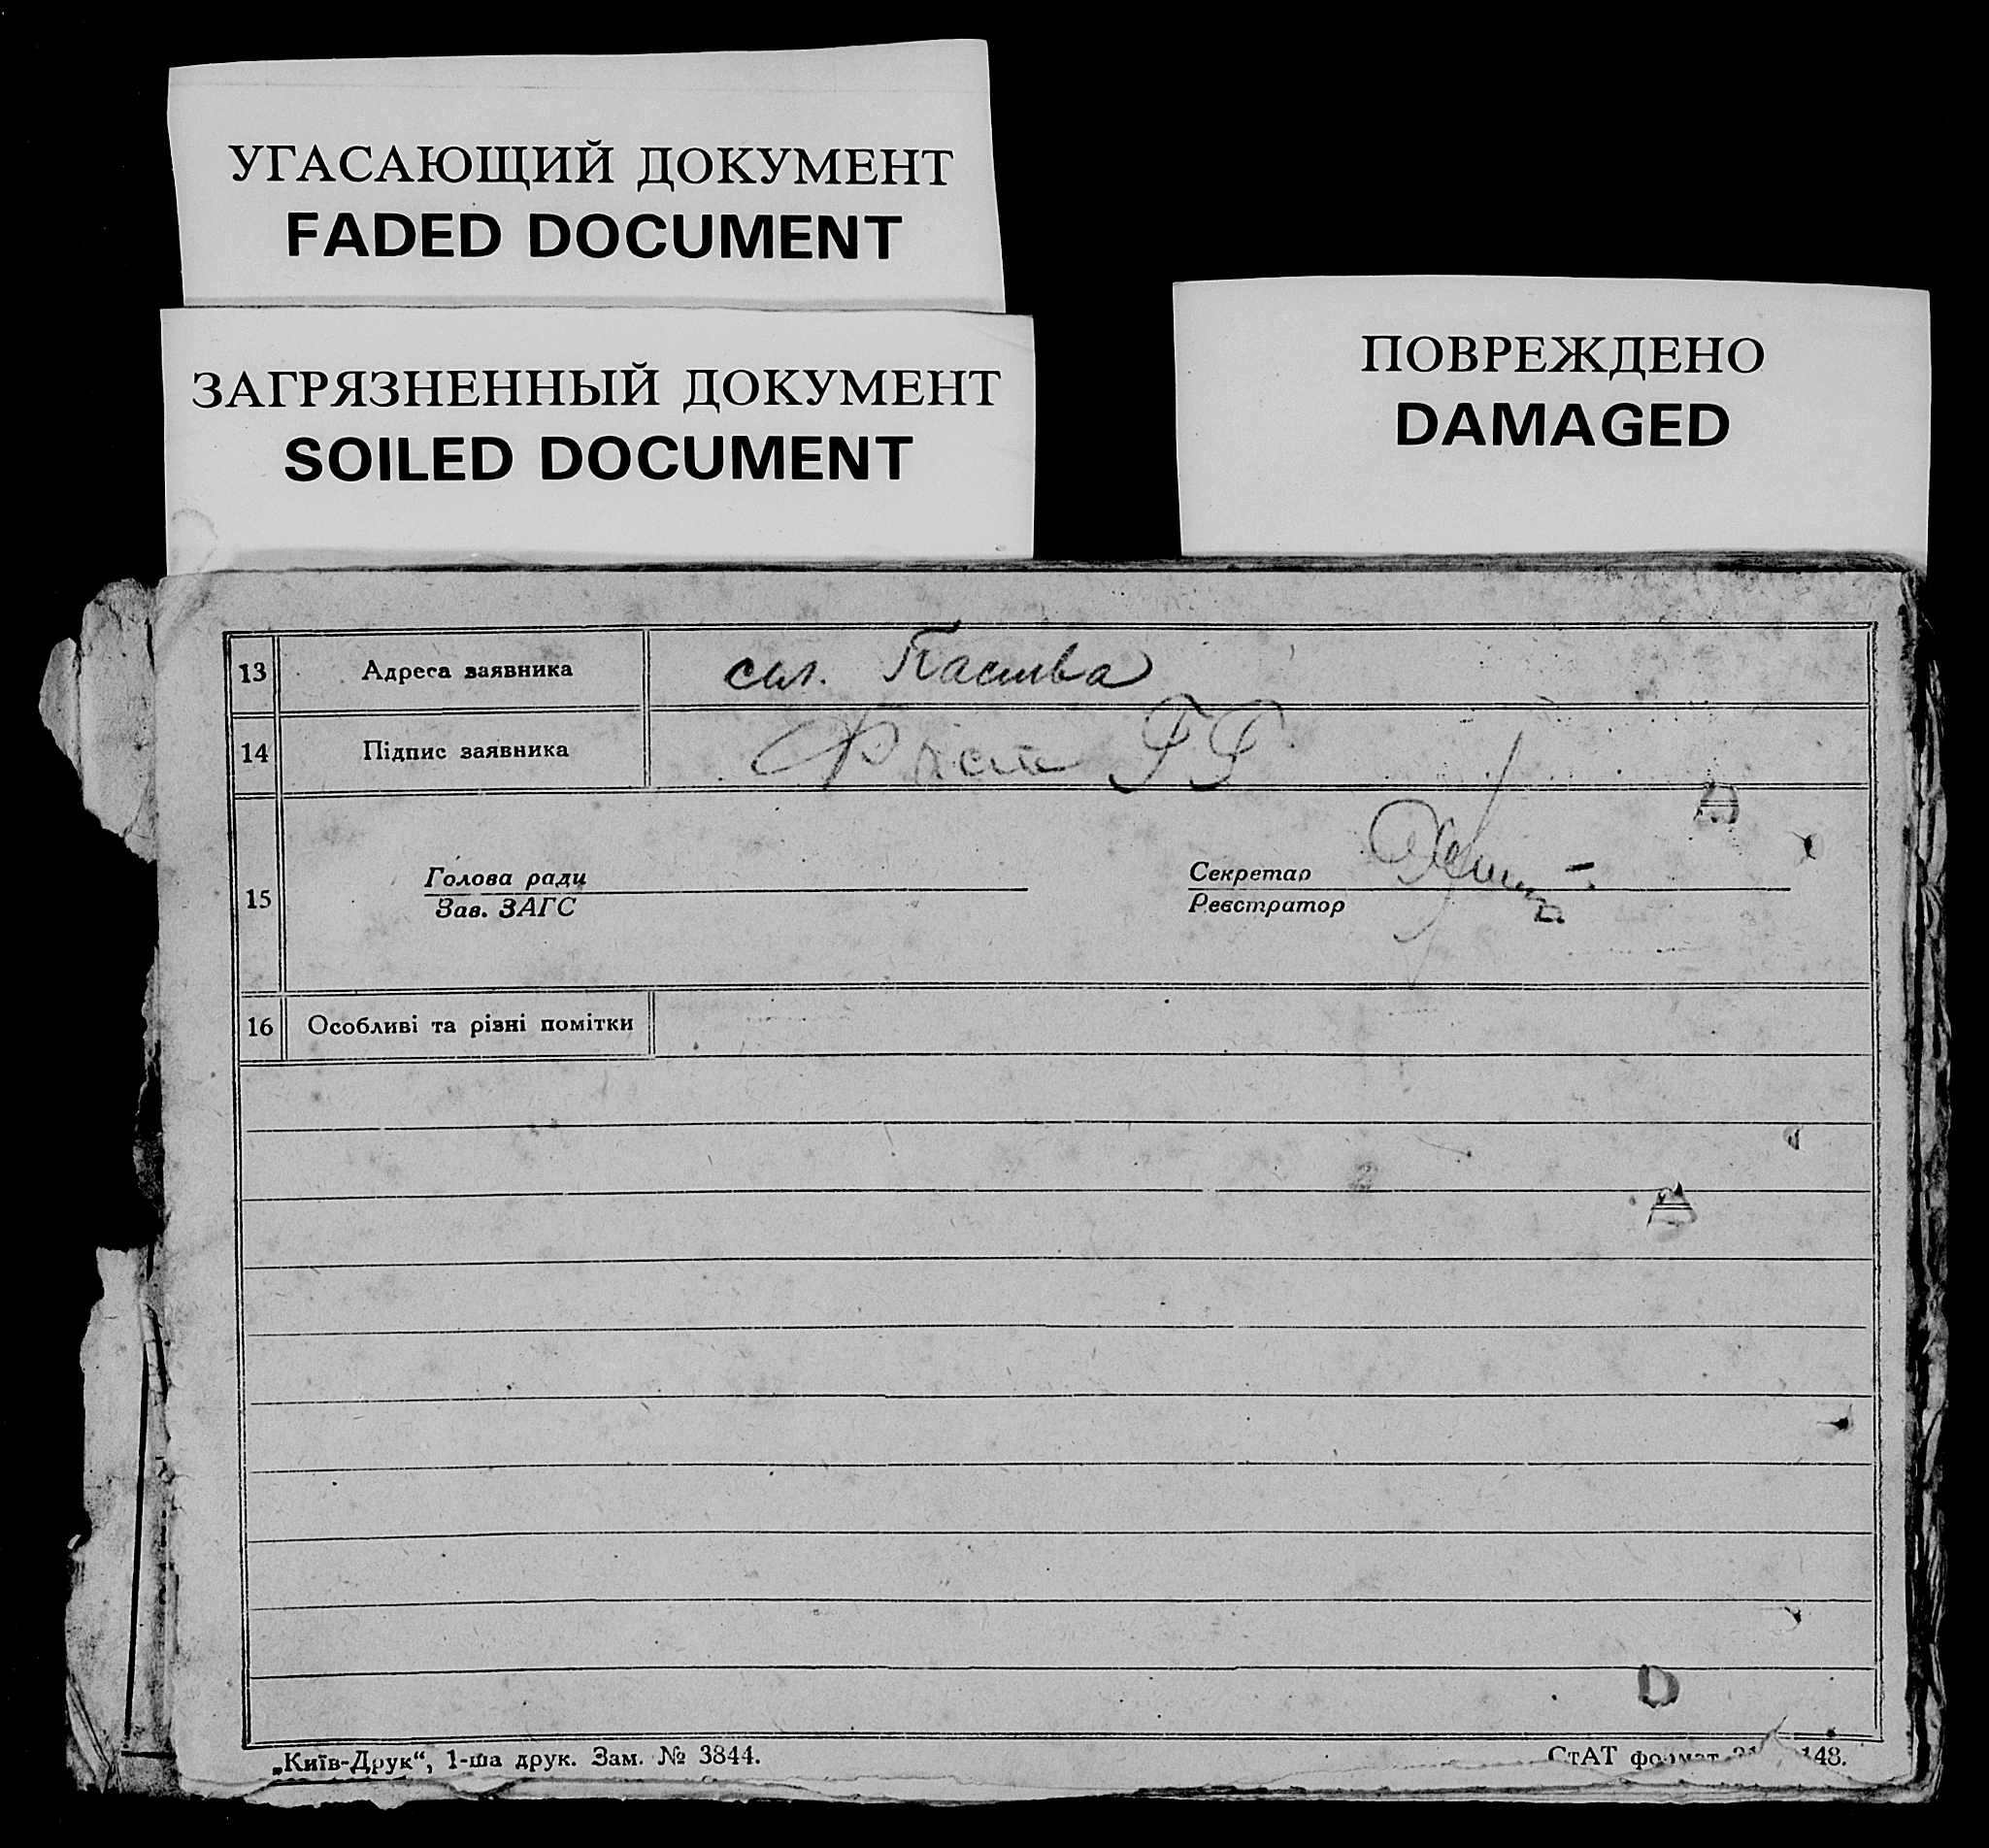 УГАСАЮЩИЙ ДОКУМЕНТ
FADED DOCUMENT
ЗАГРЯЗНЕННЫЙ ДОКУМЕНТ
SOILED DOCUMENT
ПОВРЕЖДЕНО
DAMAGED
13 Адреса заявника
14 Підпис заявника
15 Голова ради
Зав. ЗАГС
Секретар
Реєстратор
16 Особливі та різні помітки
„Київ-Друк“, 1-ша друк. Зам. № 3844.
СтАТ формат 148.